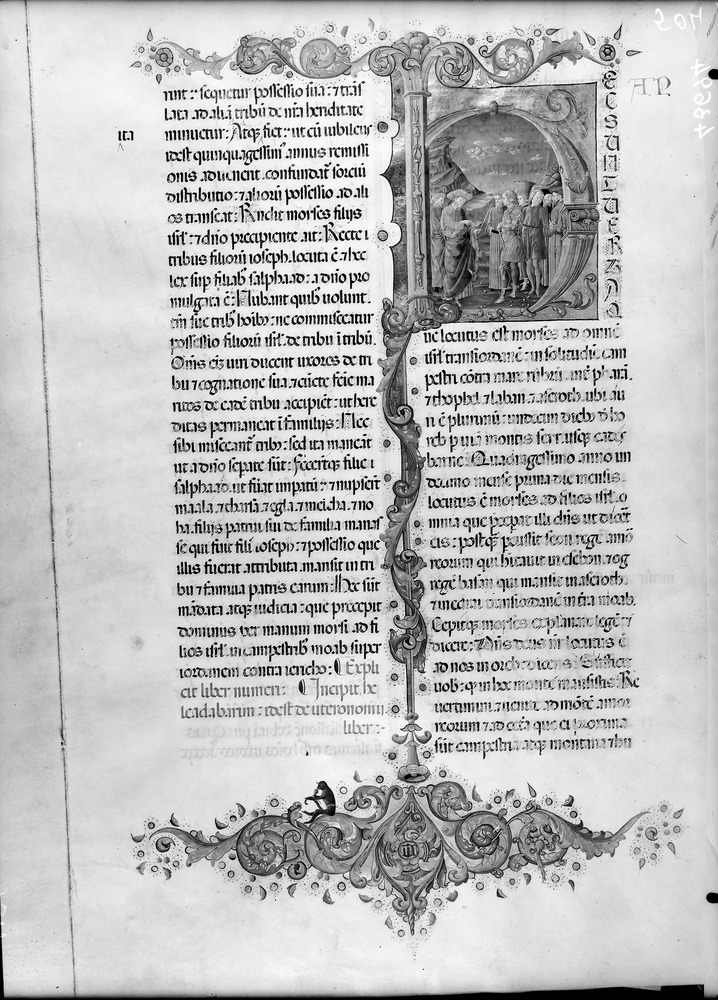 rint : sequetur possessio sua : ⁊ trās
lata ad aliā tribū de nr̄a heriditate
minuetur : Atq̢ fiet : ut cū iubileus
ita
idest quinquagessim' annus remissi
onis aduenerit. confundat̄ sorciū
distributio : ⁊ aliorū possessio ad ali
os transeat : Rndit moyses filijs
isrl̄ : ⁊ dn̄o precipiente ait : Recte i
tribus filiorū ioseph. locuta ē : ⁊ hec
lex sup filiab; salphaad : a dn̄o pro
mulgata ē : Nubant quib; uolunt.
tm̄ sue trib; hoib; : ne commisceatur
possessio filiorū isrl̄. de tribu ī tribū.
Oms̄ ei; uiri ducent uxores de tri
bu ⁊ cognatione sua. ⁊ cūcte fēie ma
ritos de eadē tribu accipiēt : ut here
ditas permaneat ī familijs : Nec
sibi misceant̄ trib; : sed ita maneāt
ut a dn̄o separate sūt : Fecerūtq̢ filie
salphaad. ut fūat imperatū : ⁊ nupserūt
maala. ⁊ thersa. ⁊ egla. ⁊ melcha. ⁊ no
ha. filijs patrui sui de familia manas
se qui fuit filij ioseph : ⁊ possessio que
illis fuerat attributa. mansit in tri
bu ⁊ familia patris earum : Hec sūt
mādata atq̢ iudicia : que precepit
dominus per manum moysi ad fi
lios isrl̄. in campestrib; moab super
iordanem contra iericho : Expli
cit liber numeri : Incipit he
leadabarim : idest deuteronomij
liber :-
EC SUNT UERBA Q
ue locutus est moyses ad omnē
isrl̄ transiordanē : in solitudīe cam
pestri cōtra mare rubrū. int̄ pharā.
⁊ thophel ⁊ laban. ⁊ aseroth. ubi au
ri ē plurimū : undecim dieb; d̄ ho
reb p uiā montis seyr. usq̢ cades
barne : Quadragessimo anno un
decimo mense prima die mensis.
locutus ē moyses ad filios isrl̄. o
mnia que precepat illi dn̄s ut dicēt
eis : postq̄ pcussit seon regē amo
reorum qui hitauit in esebon. ⁊ og
regē basan qui mansit in aseroth.
⁊ in edrai transiordanē in t̄ra moab.
Cepitq̢ moyses explanare legē. ⁊
dicere : Dn̄s deus nr̄ locutus ē
ad nos in oreb : dicens : Sufficit
uob; q̄ in hoc monte mansistis. Re
uertimini ⁊ uenite ad mōtē amor
reorum ⁊ ad cet̄a que ei proxima
sūt campestria atq̢ montana. ⁊ hu
507
43694